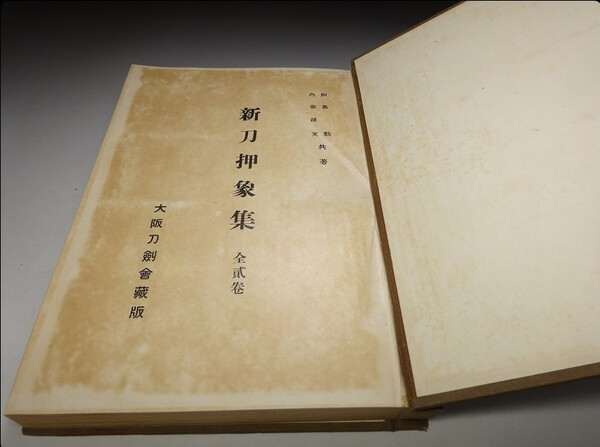 加島 勲
内田疎天
共著
新刀押象集 全貳卷
大阪刀劍會藏版